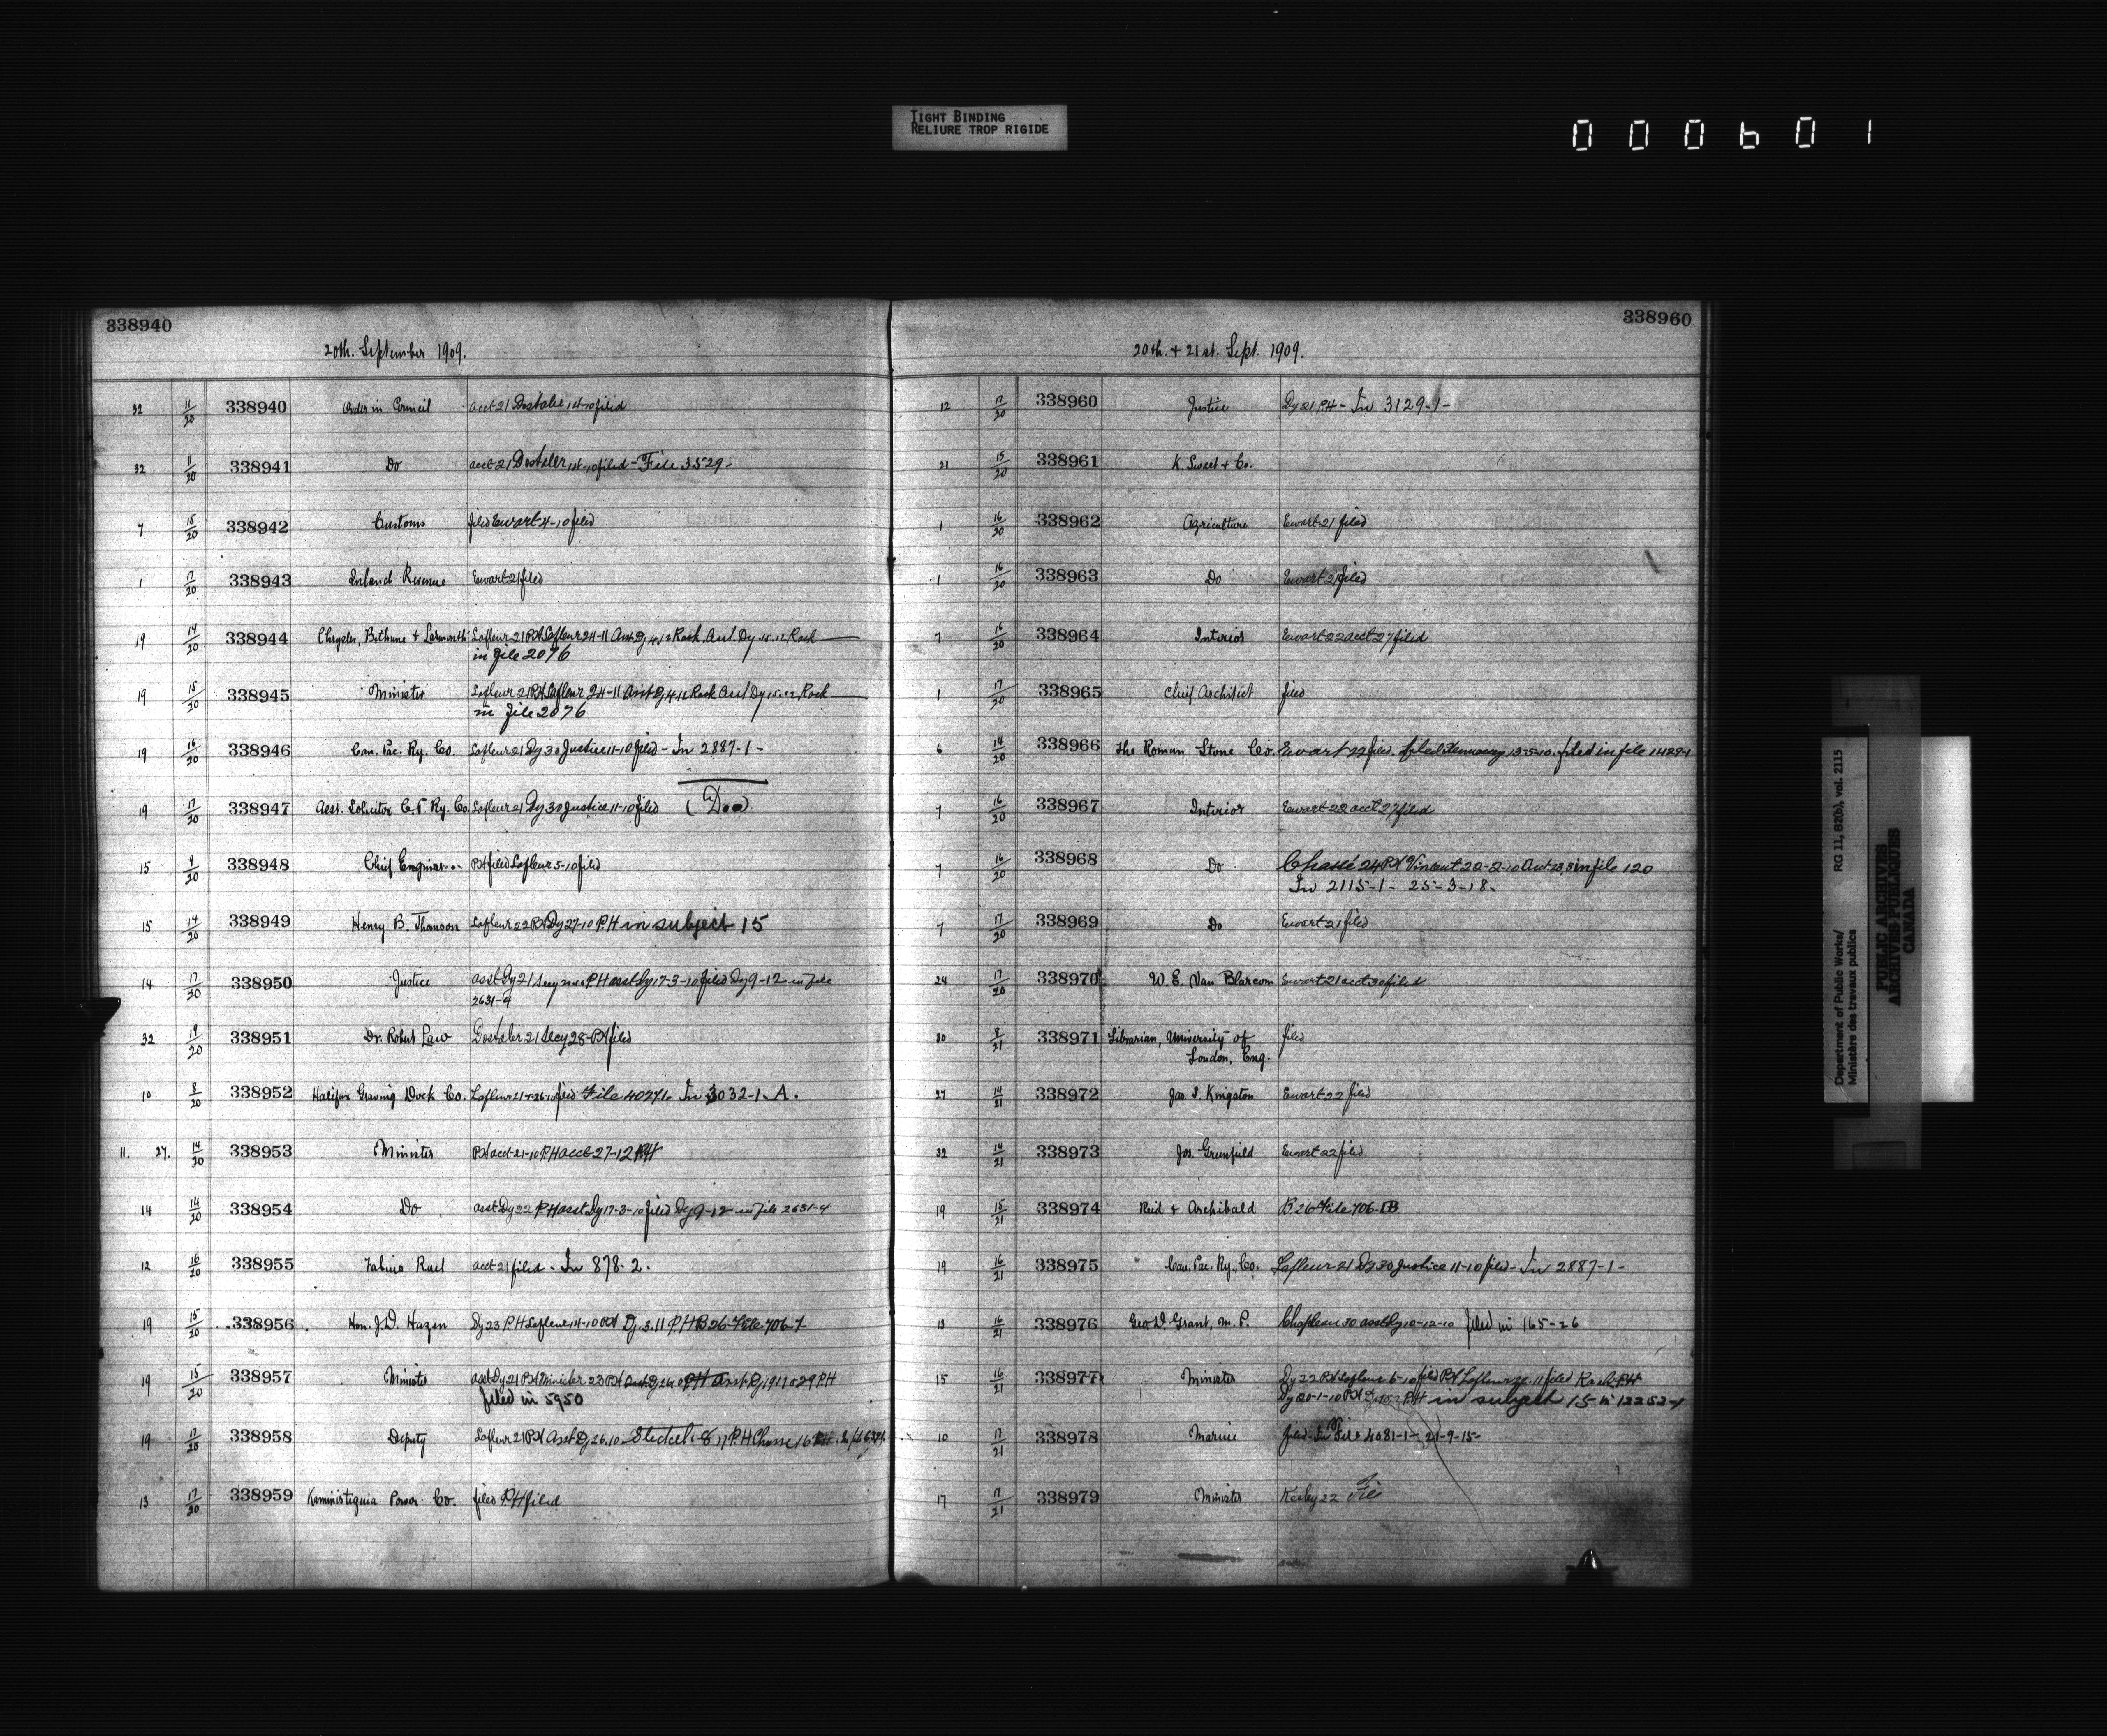 TIGHT BINDING
RELIURE TROP RIGIDE
000601
338940
20th. September 1909.
32 11/20 338940 Order in Council acct 21 Dostaler 1st-10 filed
32 11/20 338941 Do acct 21 Dostaler 1st-10 filed - File 3529-
7 15/20 338942 Customs filed Ewart 4-10 filed
1 17/20 338943 Inland Revenue Ewart 21 filed
19 14/20 338944 Chrysler, Bethune + Larmonth Lafleur 21 PH Lafleur 24-11 Asst Dy 4.12 Rook. Asst. Dy 15.12 Rook
in file 2076
19 15/20 338945 Minister Lafleur 21 PH Lafleur 24-11 Asst Dy 4.12 Rook Asst Dy 15.12 Rook
in file 2076
19 16/20 338946 Can. Pac. Ry. Co. Lafleur 21 Dy 30 Justice 11-10 filed - In 2887-1-
19 17/20 338947 Asst. Solicitor C.P. Ry. Co. Lafleur 21 Dy 30 Justice 11-10 filed (Do)
15 9/20 338948 Chief Engineer PH filed Lafleur 5-10 filed
15 14/20 338949 Henry B. Thomson Lafleur 22 PH Dy 27-10 P.H in subject 15
14 17/20 338950 Justice asst Dy 21 P.H asst Dy 17-3-10 filed Dy 9-12 in file
2631-4
32 19/20 338951 Dr. Robert Law Dostaler 21 Secy 28 PH filed
10 8/20 338952 Halifax Graving Dock Co. Lafleur 21 filed File 4027-1- In 3032-1-A.
11. 27. 14/20 338953 Minister PH acct-21-10 P.H acct-27-12 PH
14 14/20 338954 Do asst Dy 22 P.H asst Dy 17-3-10 filed Dy 9-12 in file 2631-4
12 16/20 338955 Fabien acct 21 filed - In 878-2.
19 15/20 338956 Hon. J.D. Hazen Dy 23 P.H Lafleur 14-10 PH Dy. 3.11 P.H B 26 File 706-1
19 15/20 338957 Minister asst Dy 21 PH Minister 23 PH P.H Asst. Dy P.H
filed in 5950
19 17/20 338958 Deputy Lafleur 21 PH Asst Dy 26.10 Steckel 8 11 P.H Chasse 16
13 17/20 338959 Kaministiquia Power Co. filed P.H filed
338960
20th. + 21st. Sept. 1909.
12 17/20 338960 Justice Dy 21 P.H - In 3129-1-
21 15/20 338961 K. Sweet + Co.
1 16/20 338962 Agriculture Ewart 21 filed
1 16/20 338963 Do Ewart 21 filed
7 16/20 338964 Interior Ewart 22 acct 27 filed
1 17/20 338965 Chief Architect filed
6 14/20 338966 The Roman Stone Co. Ewart 22 filed. filed 13-5-10. filed in file 1429-1
7 16/20 338967 Interior Ewart 22 acct 27 filed
7 16/20 338968 Do Chassé 24 PH Vincent 22-2-10 in file 120
In 2115-1- 25-3-18-
7 17/20 338969 Do Ewart 21 filed
24 17/20 338970 W. E. Van Blarcom Ewart 21 acct 30 filed
30 8/21 338971 Librarian, University of filed
London, Eng.
27 14/21 338972 Jas. S. Kingston Ewart 22 filed
32 14/21 338973 Jos. Grunfield Ewart 22 filed
19 15/21 338974 Reid + Archibald B. 26 File 706-1B
19 16/21 338975 Can. Pac. Ry. Co. Lafleur 21 Dy 30 Justice 11-10 filed - In 2887-1-
13 16/21 338976 Geo D. Grant, M.P. Chapleau 30 asst Dy 10-12-10 filed in 165-26
15 16/21 338977 Minister Dy 22 PH Lafleur 6-10 filed PH Lafleur 11 filed Rook P.H
Dy 20-1-10 PH P.H in subject 15 in 12253-1
10 17/21 338978 Marine filed - In File 4081-1- 21-9-15-
17 17/21 338979 Minister Keeley 22
Department of Public Works/ RG 11, B2(b), vol. 2115
Ministère des travaux publics
PUBLIC ARCHIVES
ARCHIVES PUBLIQUES
CANADA